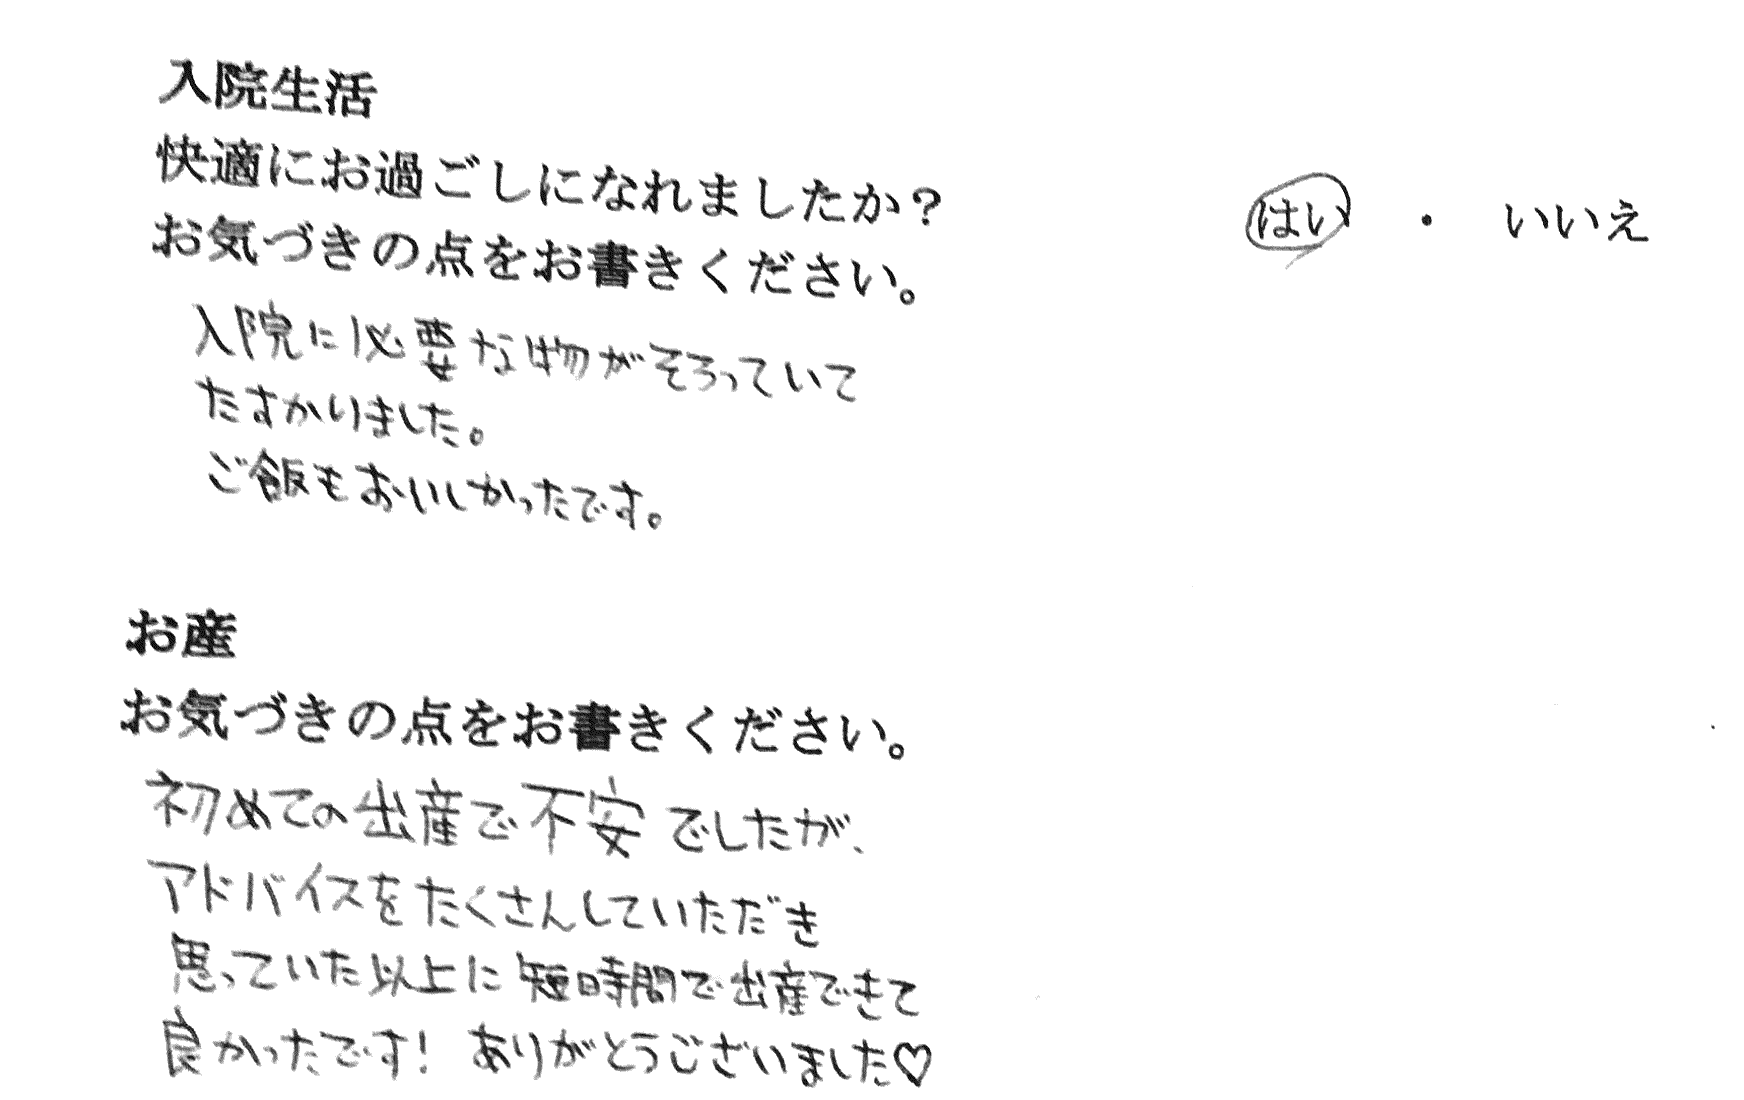 入院生活
快適にお過ごしになれましたか？ はい ・ いいえ
お気づきの点をお書きください。
入院に必要な物がそろっていて
たすかりました。
ご飯もおいしかったです。
お産
お気づきの点をお書きください。
初めての出産で不安でしたが、
アドバイスをたくさんしていただき
思っていた以上に短時間で出産できて
良かったです! ありがとうございました♡